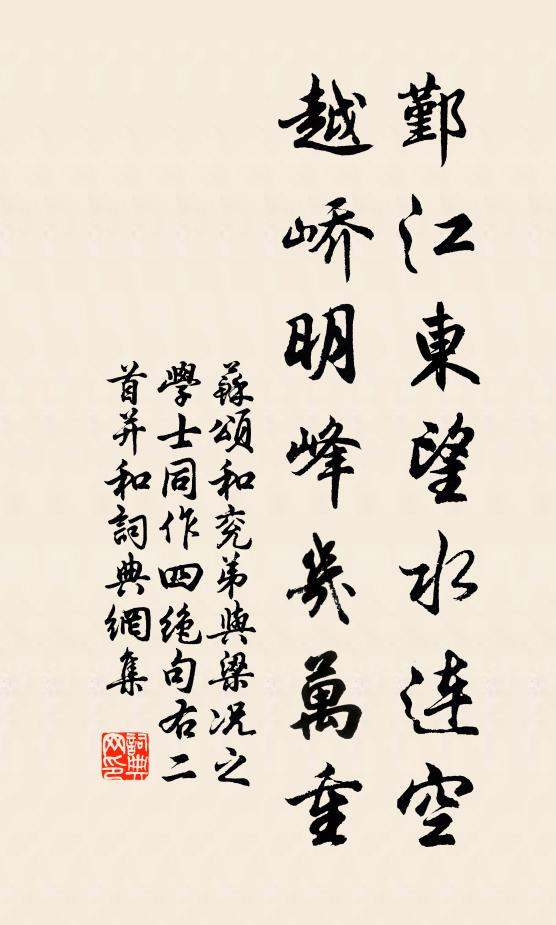 鄞江東望水连空
越峤明峰幾萬重
蘇頌和兖弟與梁况之
學士同作四絶句右二
首并和詞典網集
詞典网印